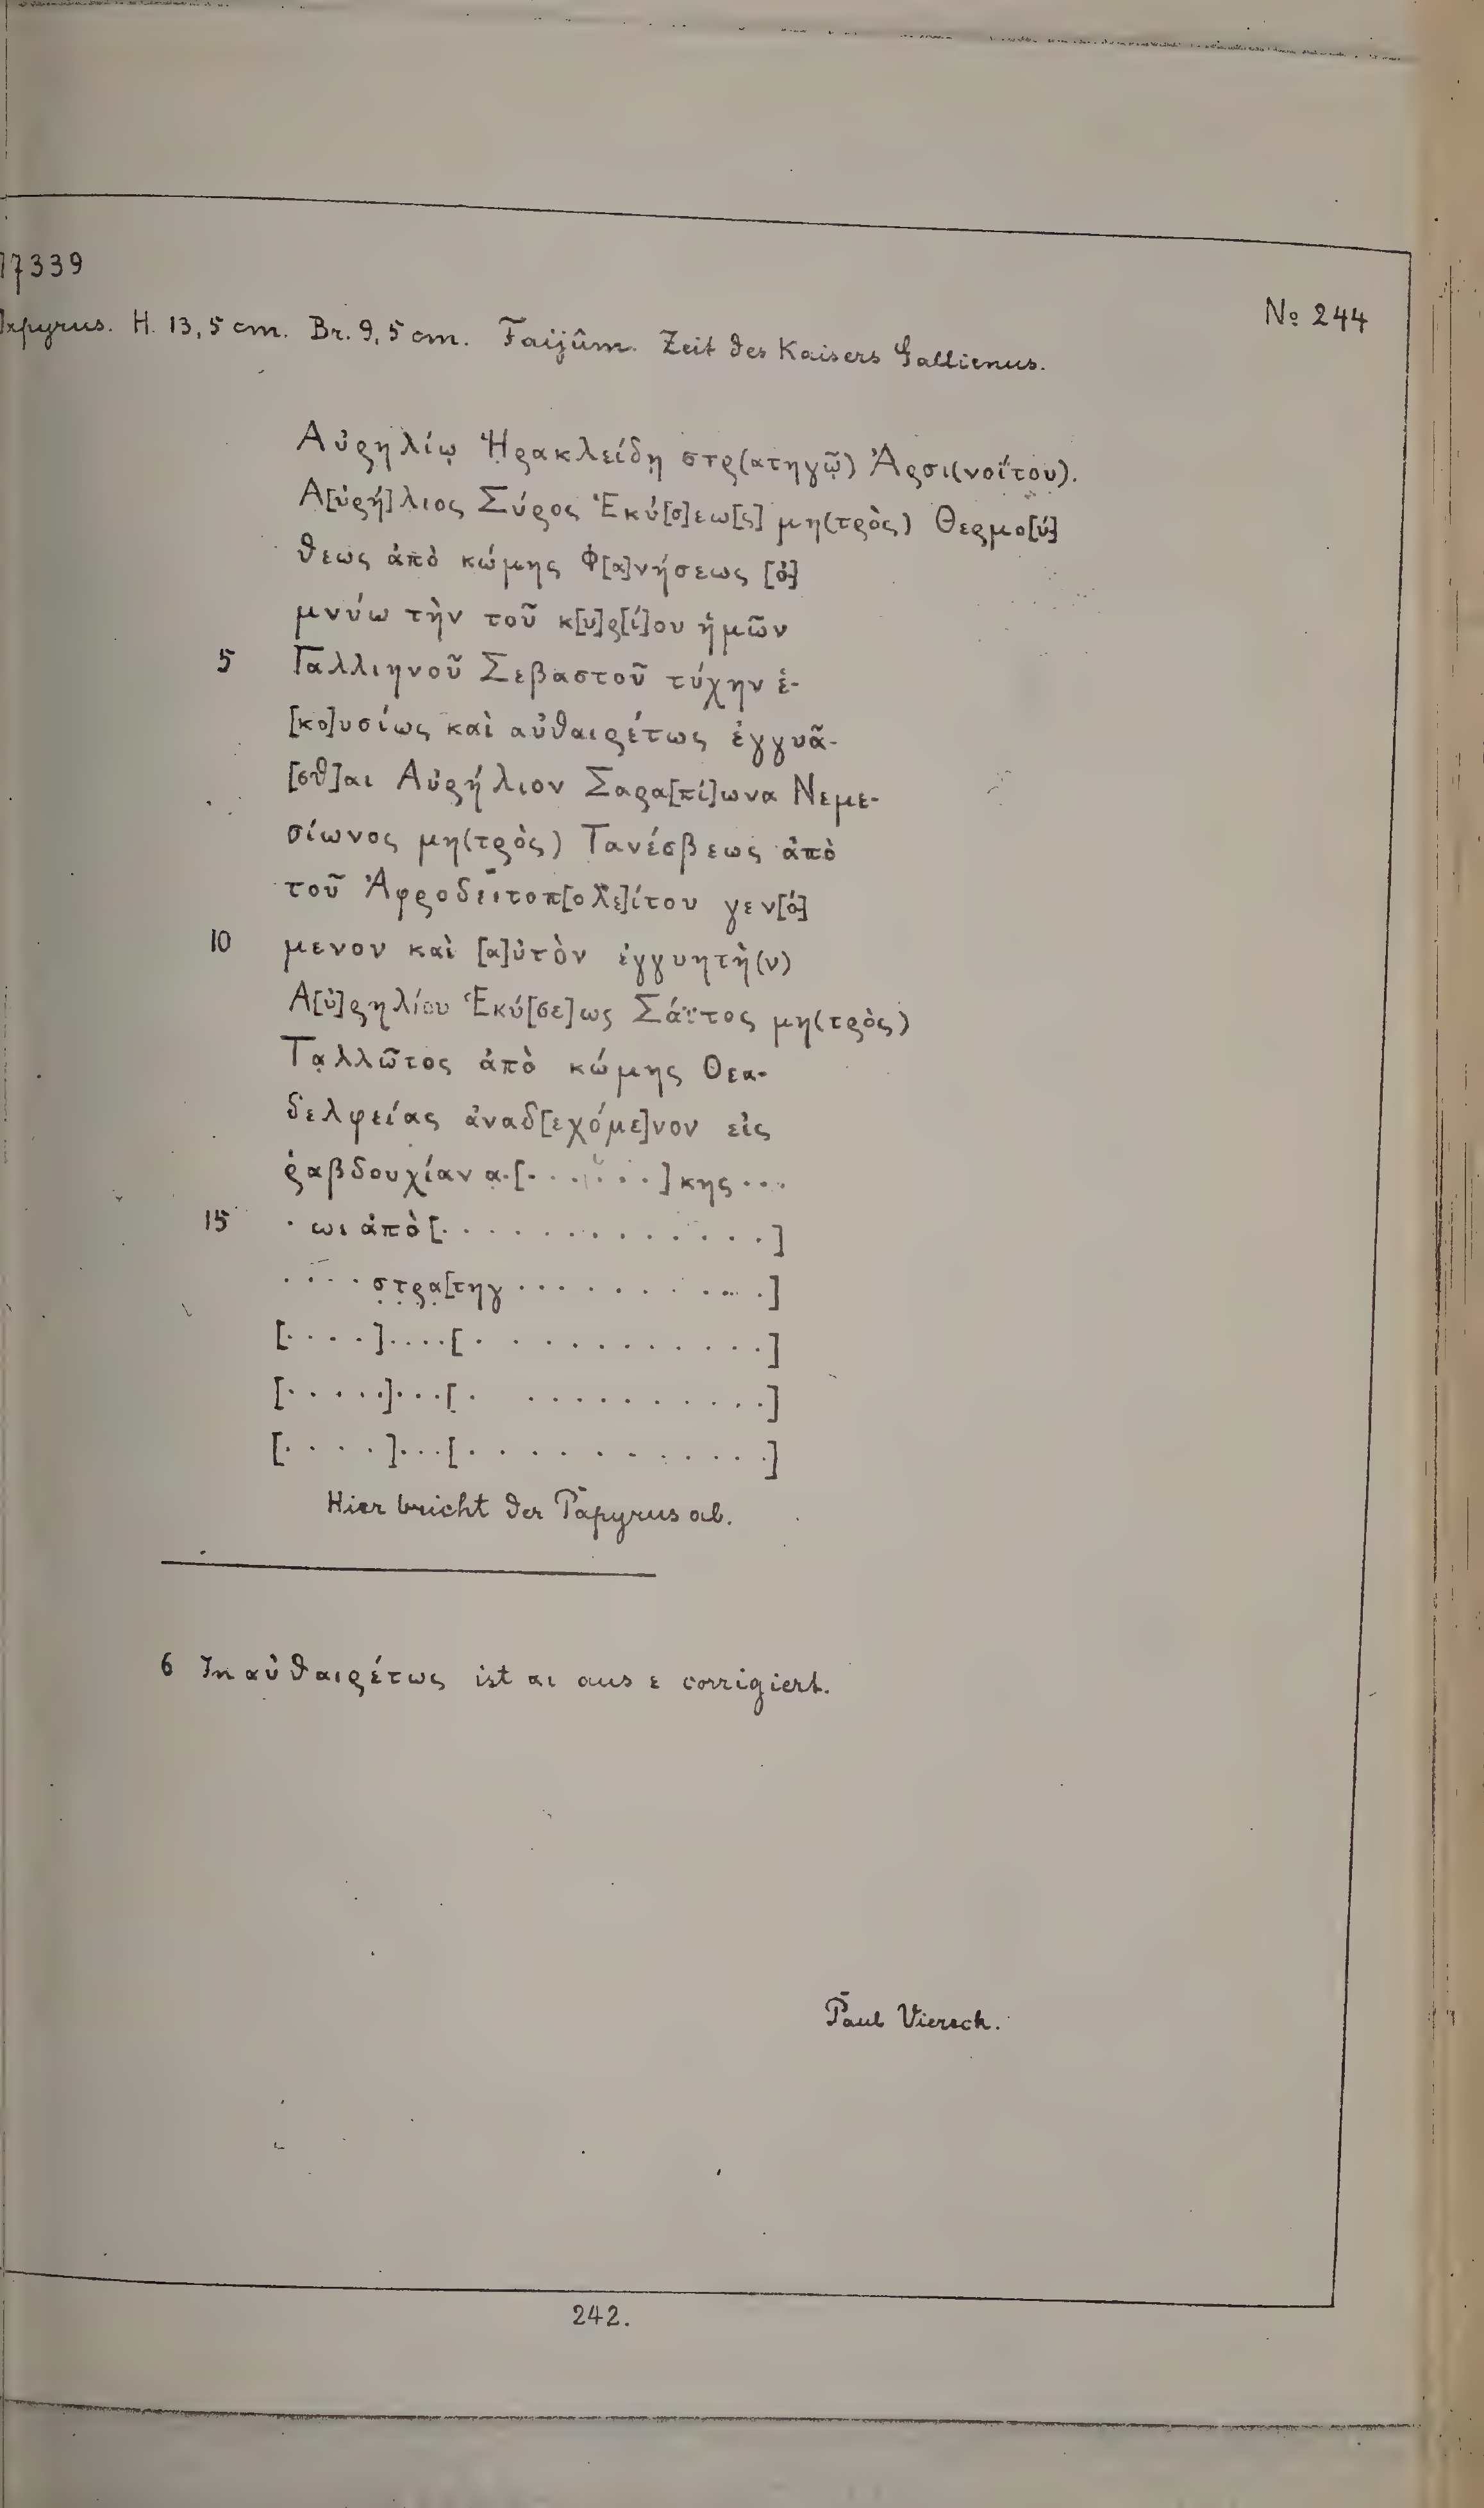 17339
Papyrus. H. 13,5 cm. Br. 9,5 cm. Faijûm. Zeit des Kaisers Gallienus.
No 244
Αὐρηλίῳ Ἡρακλείδῃ στρ(ατηγῷ) Ἀρσι(νοΐτου).
Α[ὐρή]λιος Σύρος Ἑκύ[σ]εω[ς] μη(τρὸς) Θερμο[ύ]
θεως ἀπὸ κώμης Φ[α]νήσεως [ὀ]
μνύω τὴν τοῦ κ[υ]ρ[ί]ου ἡμῶν
5 Γαλλιηνοῦ Σεβαστοῦ τύχην ἑ-
[κο]υσίως καὶ αὐθαιρέτως ἐγγυᾶ-
[σθ]αι Αὐρήλιον Σαρα[πί]ωνα Νεμε-
σίωνος μη(τρὸς) Τανέσβεως ἀπὸ
τοῦ Ἀφροδειτοπ[ολε]ίτου γεν[ό]
10 μενον καὶ [α]ὐτὸν ἐγγυητὴ(ν)
Α[ὐ]ρηλίου Ἑκύ[σε]ως Σάϊτος μη(τρὸς)
Τα̣λλῶτος ἀπὸ κώμης Θεα-
δελφείας ἀναδ[εχόμε]νον εἰς
ῥαβδουχίαν α.[.......]κης...
15 . ωι ἀπὸ [.............]
.... σ̣τ̣ρ̣α̣[τηγ ..........]
[....]....[...........]
[.....]...[...........]
[....]...[...........]
Hier bricht der Papyrus ab.
6 In αὐθαιρέτως ist αι aus ε corrigiert.
Paul Viereck.
242.